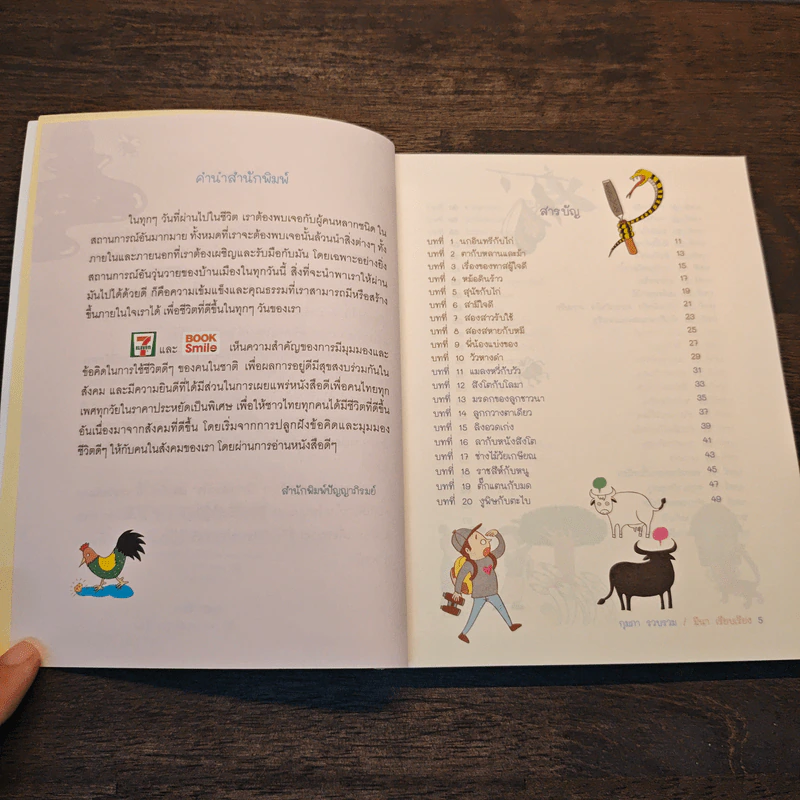 คำนำสำนักพิมพ์
ในทุกๆ วันที่ผ่านไปในชีวิต เราต้องพบเจอกับผู้คนหลากชนิด ใน
สถานการณ์อันมากมาย ทั้งหมดที่เราจะต้องพบเจอนั้นล้วนนำสิ่งต่างๆ ทั้ง
ภายในและภายนอกที่เราต้องเผชิญและรับมือกับมัน โดยเฉพาะอย่างยิ่ง
สถานการณ์อันวุ่นวายของบ้านเมืองในทุกวันนี้ สิ่งที่จะนำพาเราให้ผ่าน
มันไปได้ด้วยดี ก็คือความเข้มแข็งและคุณธรรมที่เราสามารถมีหรือสร้าง
ขึ้นภายในใจเราได้ เพื่อชีวิตที่ดีขึ้นในทุกๆ วันของเรา
7 ELEVEN และ BOOK Smile เห็นความสำคัญของการมีมุมมองและ
ข้อคิดในการใช้ชีวิตดีๆ ของคนในชาติ เพื่อผลการอยู่ดีมีสุขสงบร่วมกันใน
สังคม และมีความยินดีที่ได้มีส่วนในการเผยแพร่หนังสือดีเพื่อคนไทยทุก
เพศทุกวัยในราคาประหยัดเป็นพิเศษ เพื่อให้ชาวไทยทุกคนได้มีชีวิตที่ดีขึ้น
อันเนื่องมาจากสังคมที่ดีขึ้น โดยเริ่มจากการปลูกฝังข้อคิดและมุมมอง
ชีวิตดีๆ ให้กับคนในสังคมของเรา โดยผ่านการอ่านหนังสือดีๆ
สำนักพิมพ์ปัญญาภิรมย์
สารบัญ
บทที่ 1 นกอินทรีกับไก่ 11
บทที่ 2 ตากับหลานและม้า 13
บทที่ 3 เรื่องของทาสผู้ใจดี 15
บทที่ 4 หม้อดินร้าว 17
บทที่ 5 สุนัขกับไก่ 19
บทที่ 6 สามีใจดี 21
บทที่ 7 สองสาวรับใช้ 23
บทที่ 8 สองสหายกับหมี 25
บทที่ 9 พี่น้องแบ่งของ 27
บทที่ 10 วัวหางดำ 29
บทที่ 11 แมลงหวี่กับวัว 31
บทที่ 12 สิงโตกับโลมา 33
บทที่ 13 มรดกของลูกชาวนา 35
บทที่ 14 ลูกกวางตาเดียว 37
บทที่ 15 ลิงอวดเก่ง 39
บทที่ 16 ลากับหนังสิงโต 41
บทที่ 17 ช่างไม้วัยเกษียณ 43
บทที่ 18 ราชสีห์กับหนู 45
บทที่ 19 ตั๊กแตนกับมด 47
บทที่ 20 งูพิษกับตะไบ 49
รวบรวม / มีนา เรียบเรียง 5